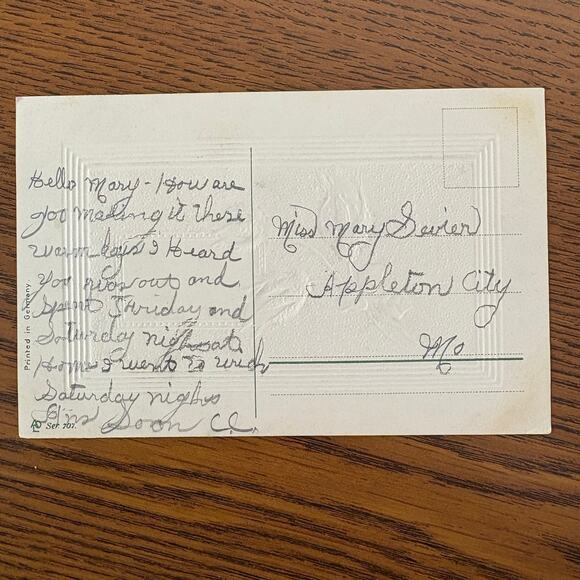 Hello Mary - How are
you making it these
warm days I Heard
you was out and
spent Friday and
Saturday night at
Home I went to
Saturday nights
Soon C.C.
Miss Mary Sevier
Appleton City
Mo
Printed in Germany.
Ser. 707.